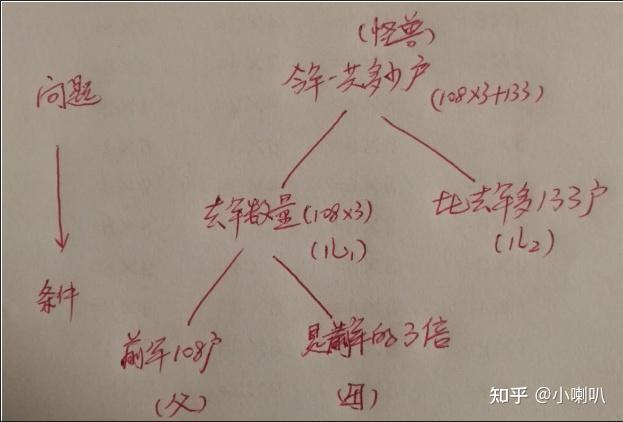 (怪兽)
问题
今年一共多少户
(108×3+133)
去年数量(108×3)
(儿₁)
比去年多133户
(儿₂)
条件
前年108户
(父)
是前年的3倍
(母)
知乎 @小喇叭